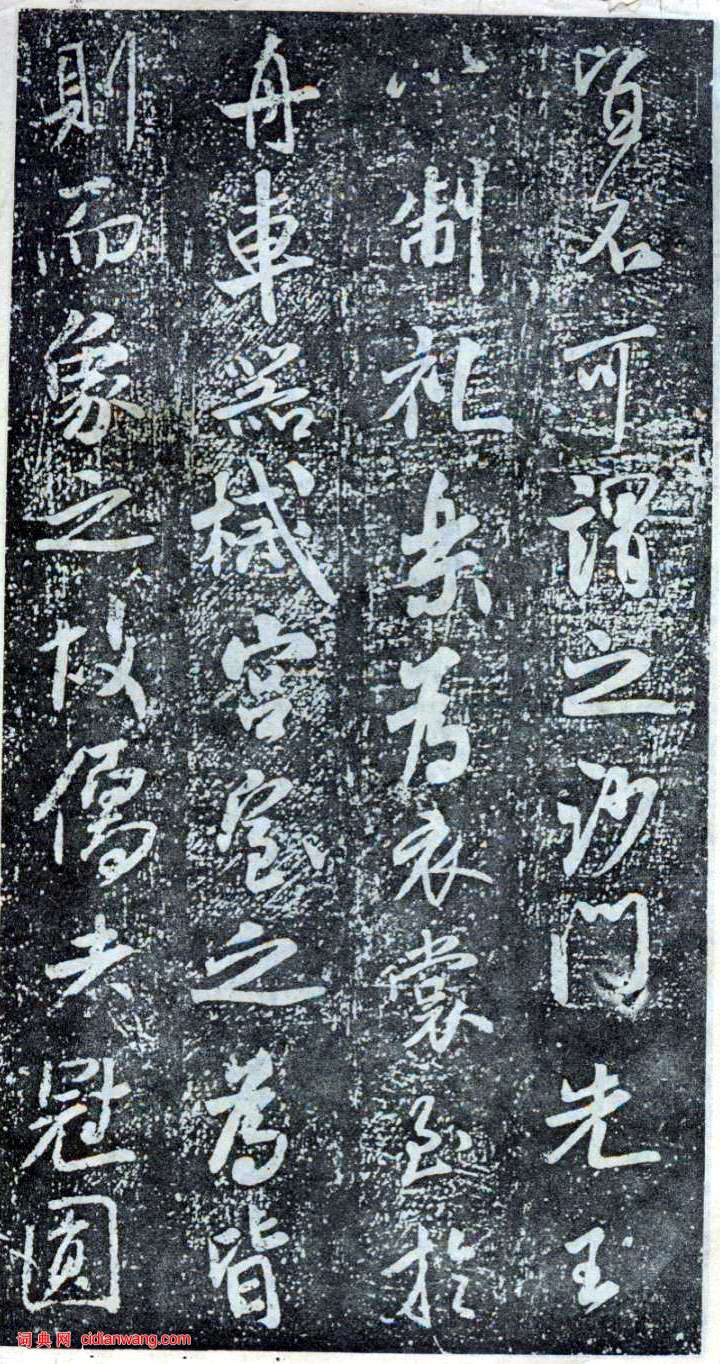 名可謂之沙門先王
以制礼樂為衣裳至於
舟車器械宮室之為皆
則而象之故儒者冠圓
词典网 cidianwang.com